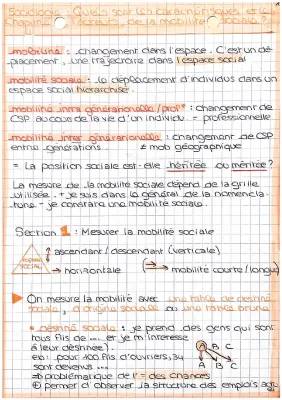 Sociologie : Quels sont les caractéristiques et les
Chapitre facteurs de la mobilité sociale ?
mobilité : changement dans l'espace. C'est un dé-
placement, une trajectoire dans l'espace social
mobilité sociale : le déplacement d'individus dans un
espace social hiérarchisé.
mobilité intra générationnelle / prof° : changement de
CSP au cours de la vie d'un individu = professionnelle
mobilité inter générationnelle : changement de CSP
entre générations ≠ mob géographique
= La position sociale est-elle héritée ou méritée ?
La mesure de la mobilité sociale dépend de la grille
utilisée. + je suis dans le général de la nomencla-
ture → je constaterai une mobilité sociale.
Section 1 : Mesurer la mobilité sociale
espace social
↑ ascendant / descendant (verticale)
→ horizontale
→ mobilité courte / longue)
On mesure la mobilité avec une table de destinée
sociale, d'origine sociale ou une table brute
• destinée sociale : je prend des gens qui sont
tous fils de ... et je m'intéresse
à leur destinée).
A B C
ex : pour 100 fils d'ouvriers, 34
sont devenus ...
A B C
⇒ problématique de l'= des chances
⊕ permet d'observer la structure des emplois